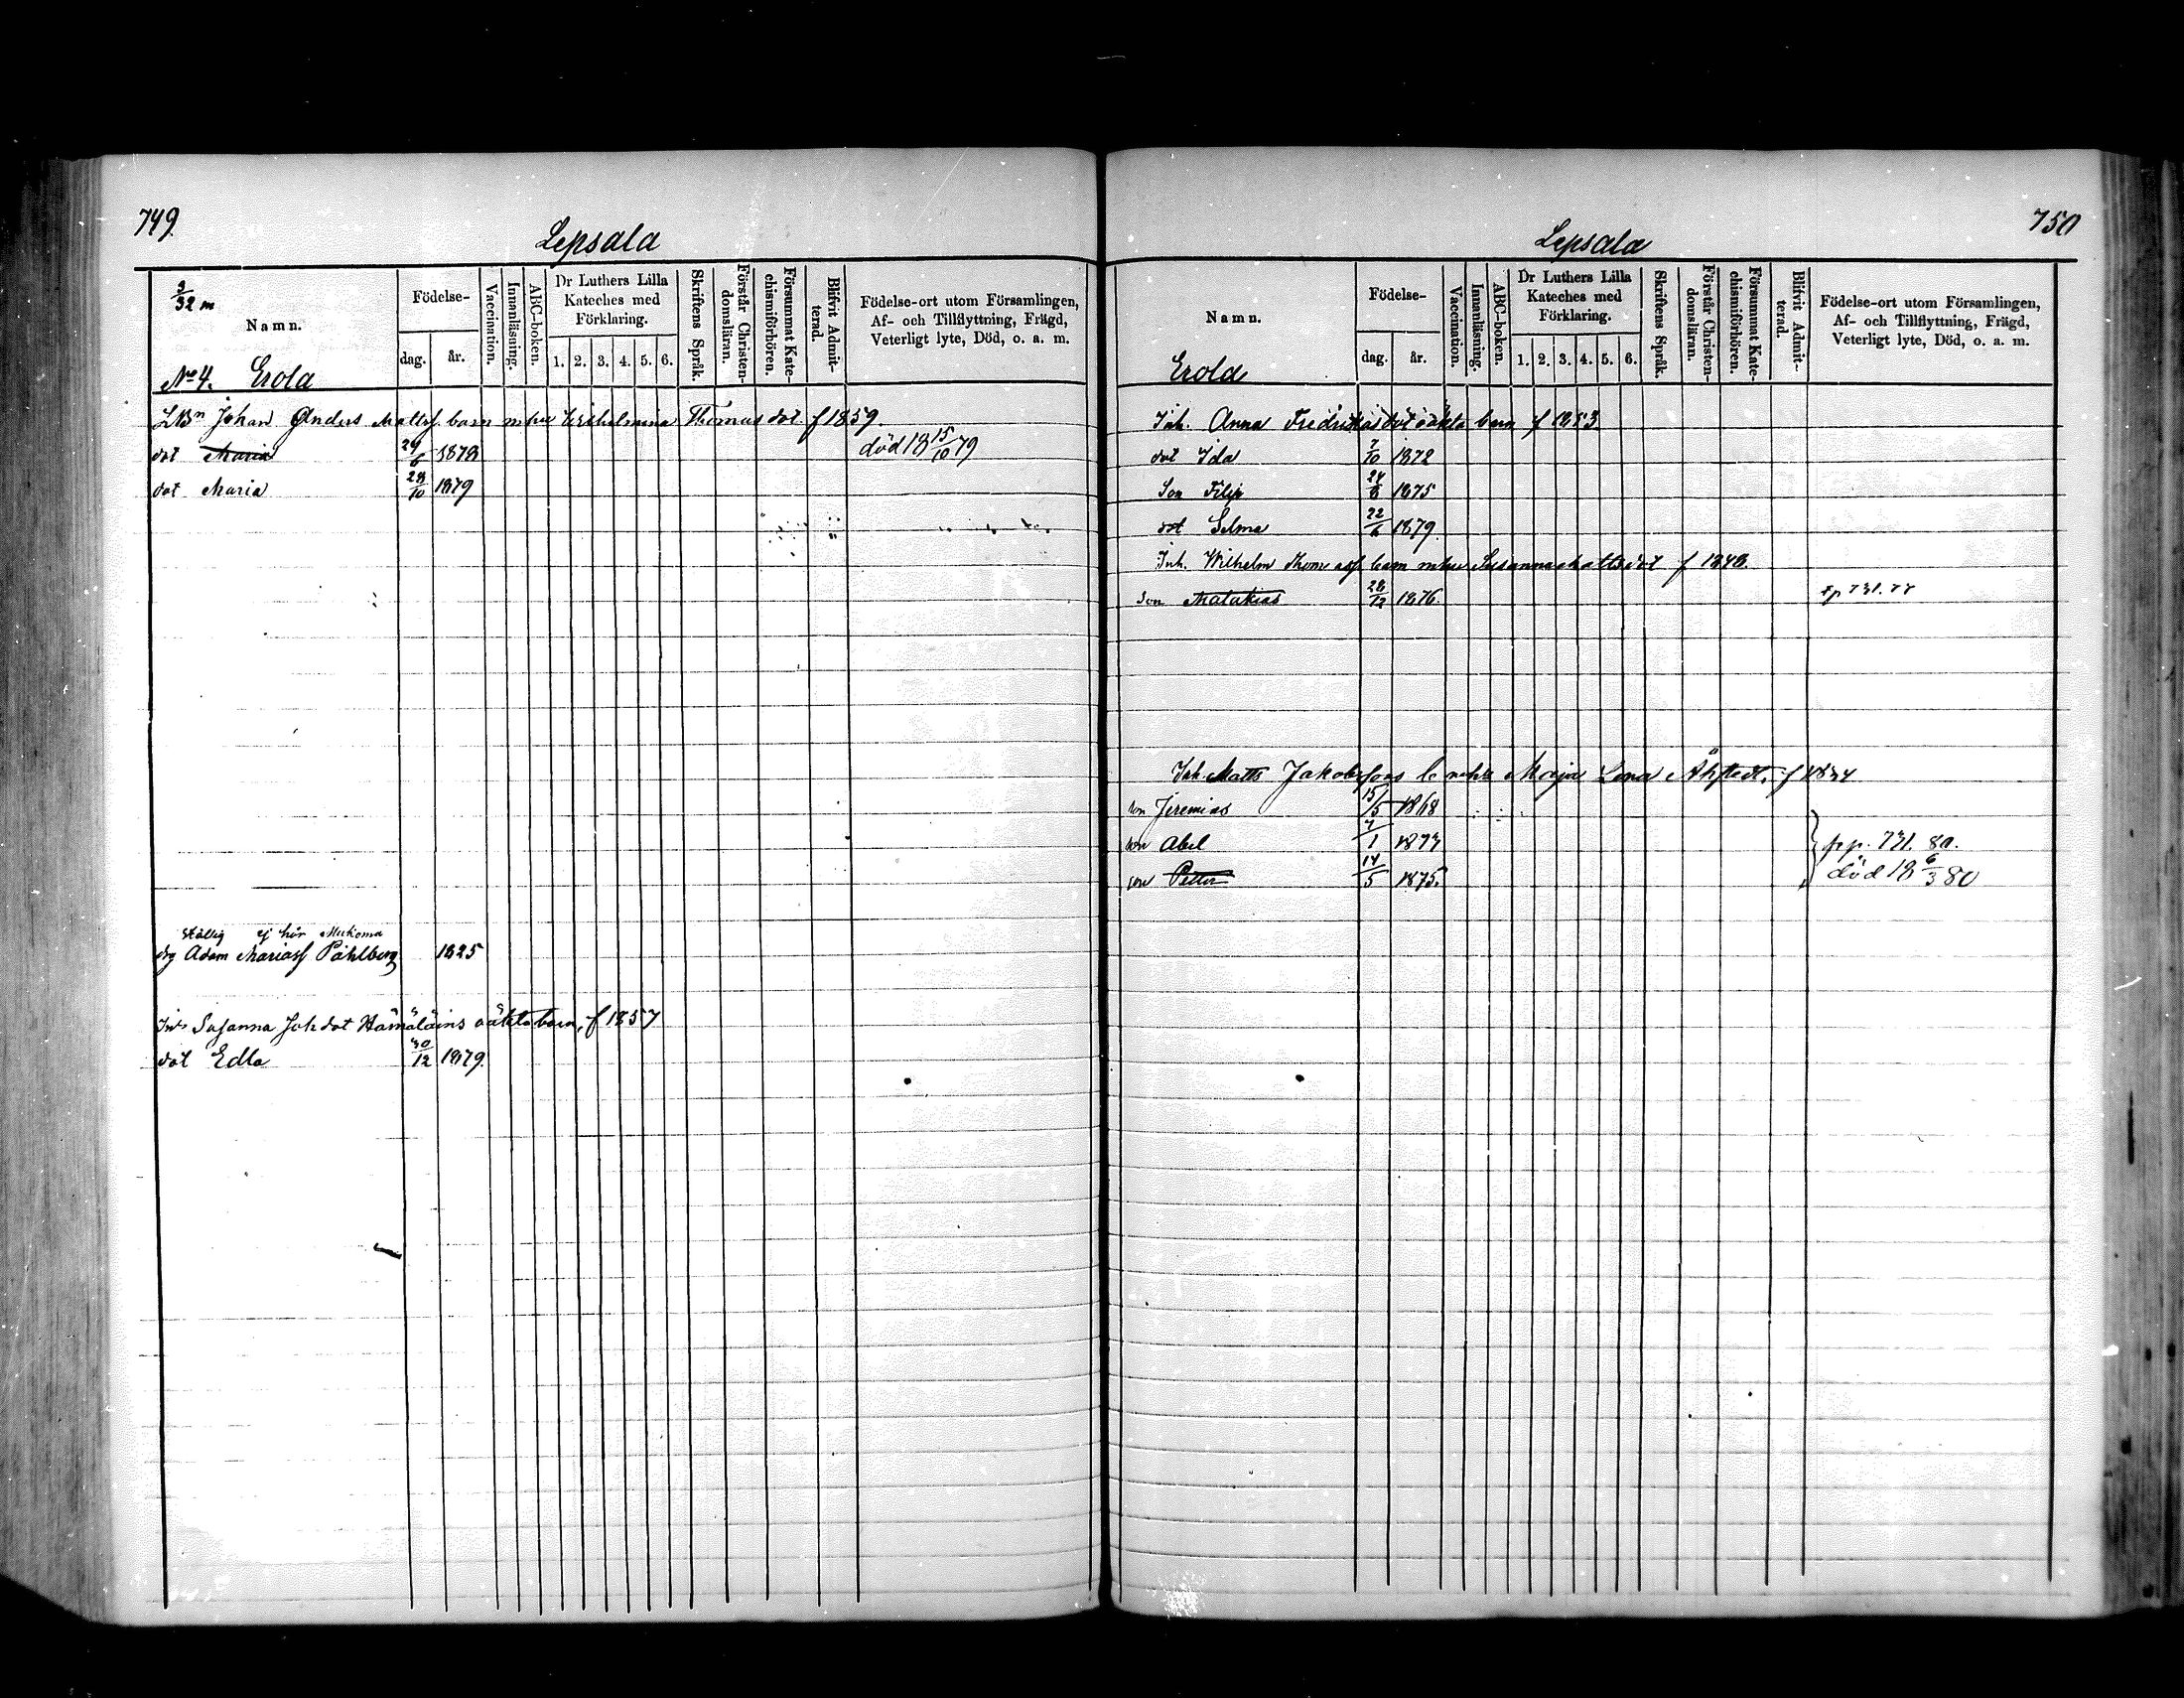 749.
Lepsala
3/32 m
Namn.
Födelse-
dag.
år.
Vaccination.
Innanläsning.
ABC-boken.
Dr Luthers Lilla
Kateches med
Förklaring.
1. 2. 3. 4. 5. 6.
Skriftens Språk.
Förstår Christen-
domsläran.
Försummat Kate-
chismiförhören.
Blifvit Admit-
terad.
Födelse-ort utom Församlingen,
Af- och Tillflyttning, Frägd,
Veterligt lyte, Död, o. a. m.
No 4. Erola
Johan Anders Mattsf. barn m hu Wilhelmina Thomas dot. f 1859.
dot Maria 24/6 1878 död 18 15/10 79
dot Maria 28/10 1879
ej här
drg Adam Mariasf Påhlberg 1825
Inh Susanna Joh dot Hämäläins oäkta barn, f 1857
dot Edla 30/12 1879.
750
Lepsala
Namn.
Födelse-
dag.
år.
Vaccination.
Innanläsning.
ABC-boken.
Dr Luthers Lilla
Kateches med
Förklaring.
1. 2. 3. 4. 5. 6.
Skriftens Språk.
Förstår Christen-
domsläran.
Försummat Kate-
chismiförhören.
Blifvit Admit-
terad.
Födelse-ort utom Församlingen,
Af- och Tillflyttning, Frägd,
Veterligt lyte, Död, o. a. m.
Erola
Inh. Anna Fredriksdot oäkta barn f 1853
dot Ida 7/10 1872
Son Filip 24/8 1875
dot Selma 22/6 1879.
Inh. Wilhelm Thomasf barn m hu Susanna Mattsdot f 1848.
Son Malakias 28/12 1876.
Inh. Matts Jakobsfons b m hu Maja Lena
son Jeremias 15/5 1868
son Abel 7/1 1873 pp. 731. 80.
son Petter 14/5 1875. död 18 6/3 80